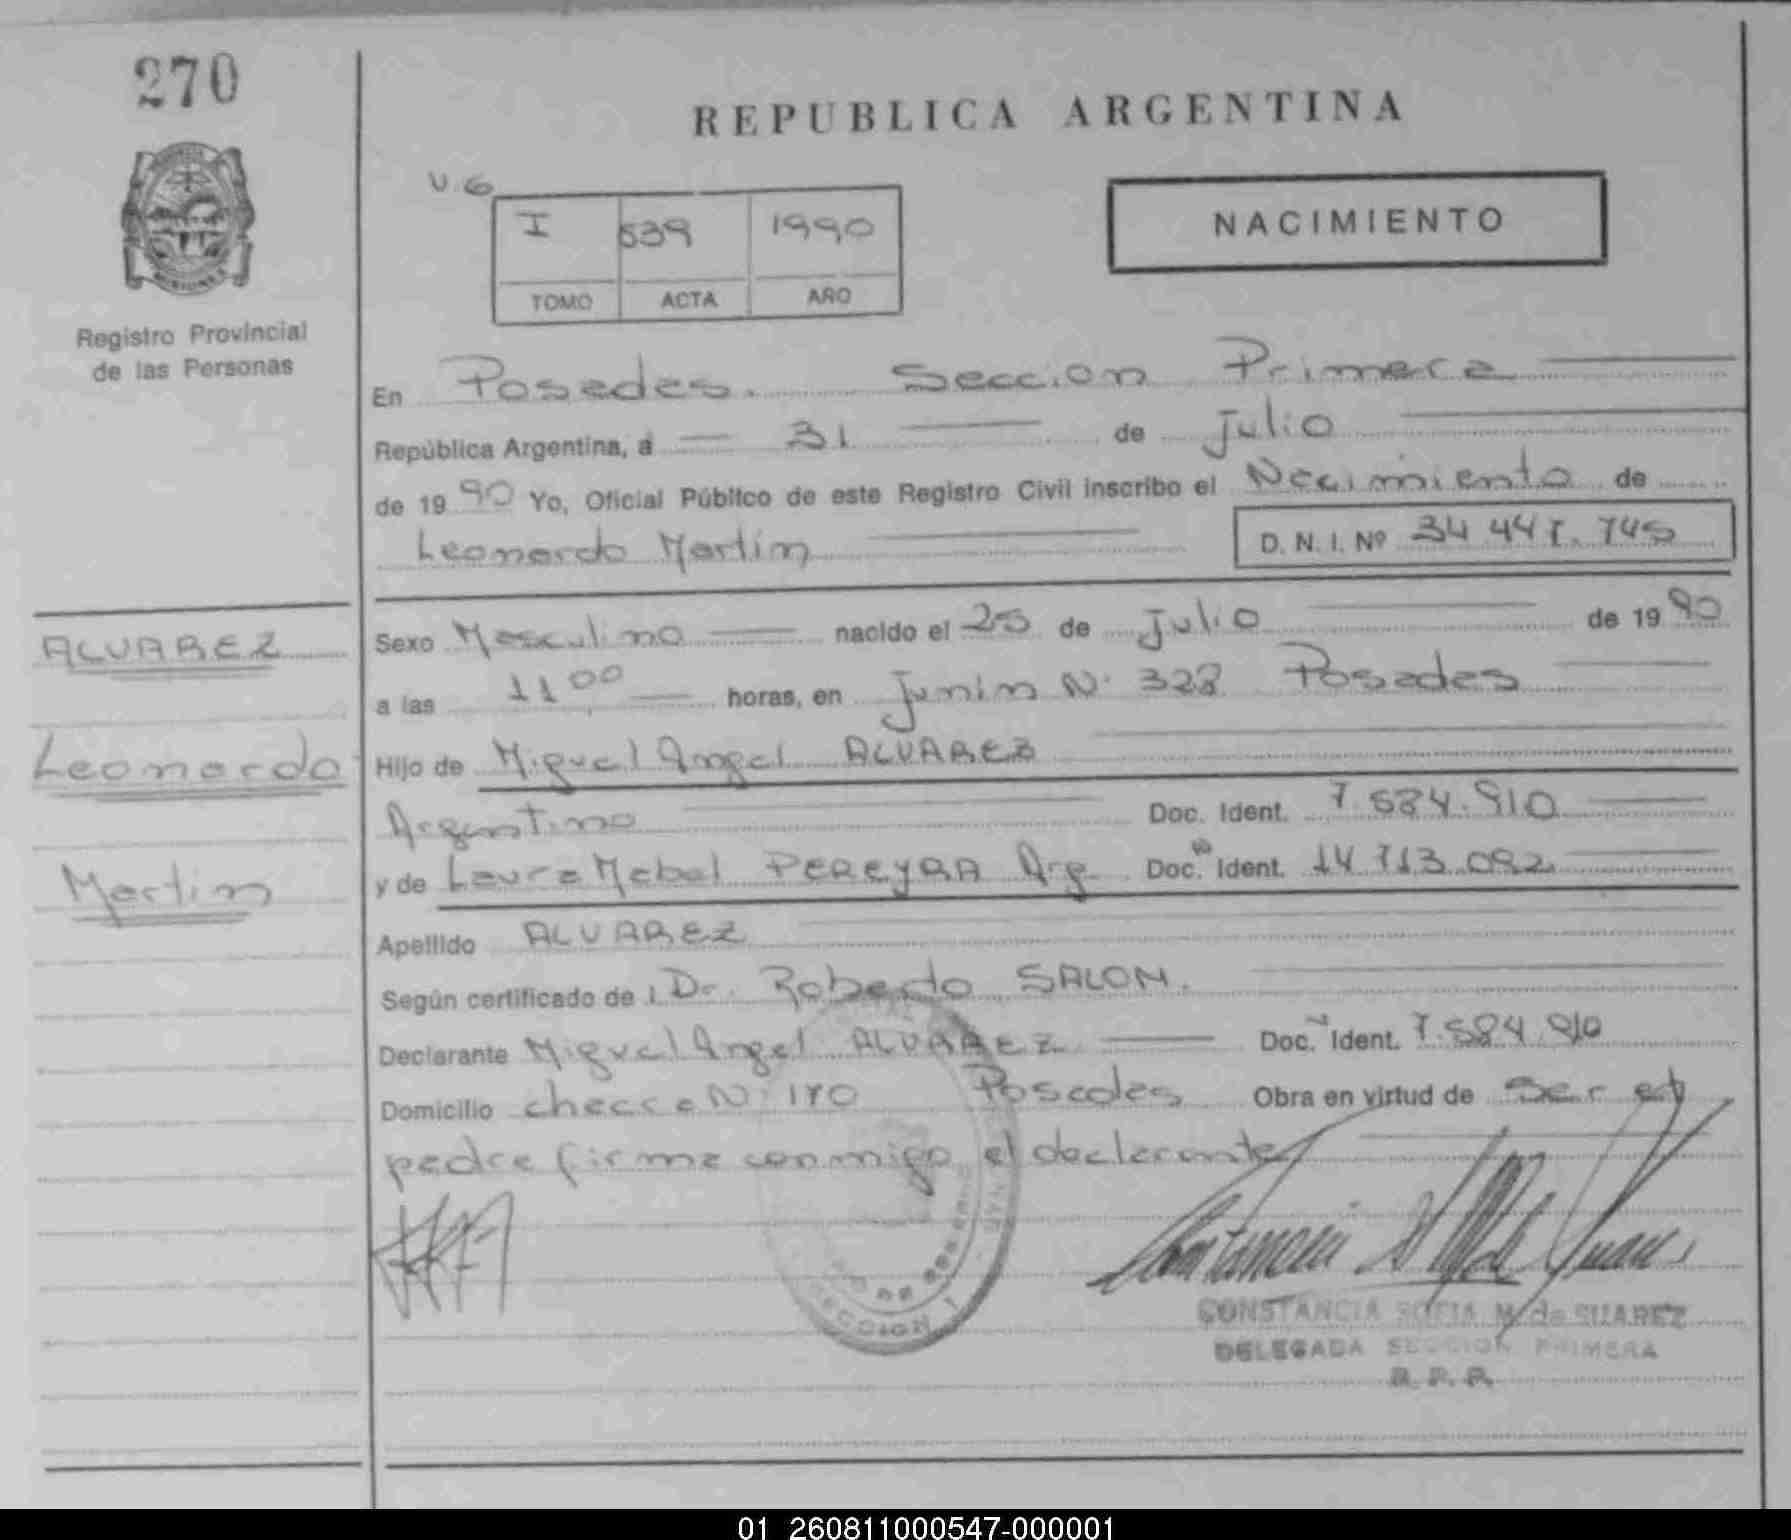 270
REPUBLICA ARGENTINA
V.G
I 539 1990
TOMO ACTA AÑO
NACIMIENTO
Registro Provincial
de las Personas
En Posadas. Sección Primera
República Argentina, a 31 de Julio
de 1990 Yo, Oficial Público de este Registro Civil inscribo el Nacimiento de
Leonardo Martin D. N. I. Nº 34 447.745
ALVAREZ
Leonardo
Martin
Sexo Masculino nacido el 25 de Julio de 1990
a las 11,00 horas, en Junin N° 328 Posadas
Hijo de Miguel Angel ALVAREZ
Argentino Doc. Ident. 7.584.910
y de Laura Mabel PEREYRA Arg. Doc. Nº Ident. 14.713.092
Apellido ALVAREZ
Según certificado de Dr. Roberto SALOM.
Declarante Miguel Angel ALVAREZ Doc. Ident. 7.584.910
Domicilio checra N° 170 Posadas Obra en virtud de Ser el
padre firma conmigo el declarante
SECCION 1
CONSTANCIA SOFIA M. de SUAREZ
DELEGADA SECCION PRIMERA
R. P. P.
01 260811000547-000001